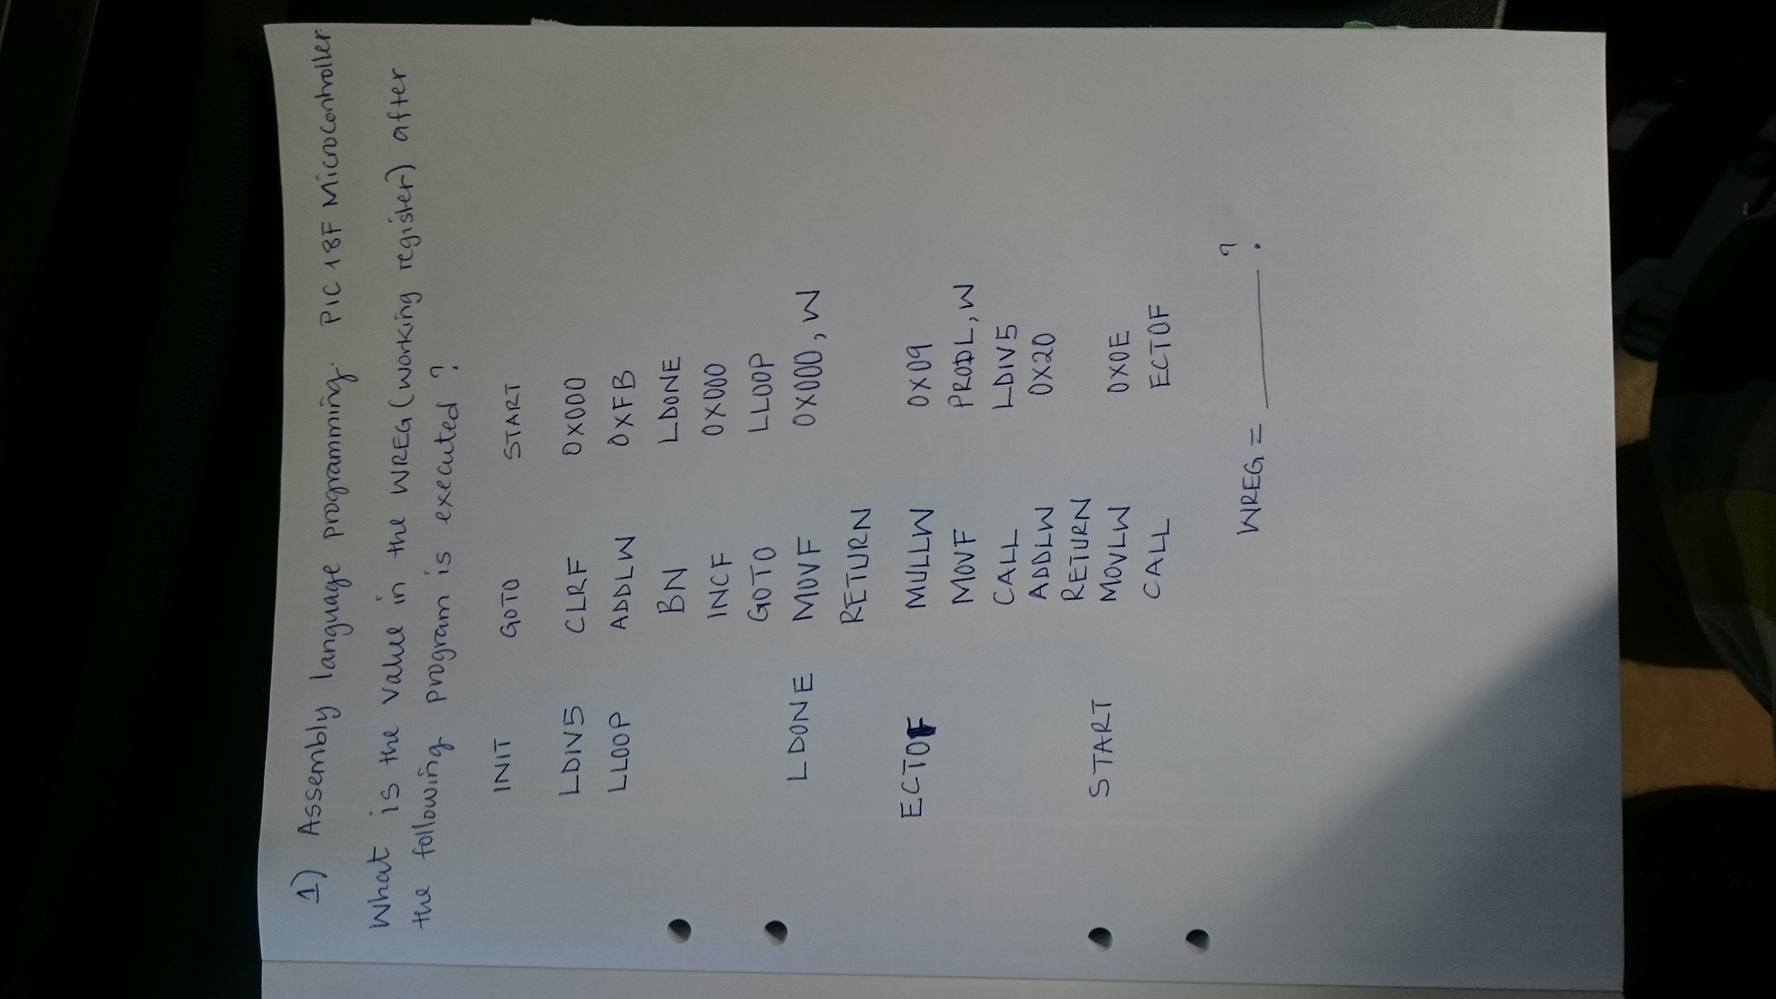 1) Assembly language programming. PIC 18F Microcontroller
What is the value in the WREG (working register) after
the following program is executed ?
INIT GOTO START
LDIV5 CLRF 0X000
LLOOP ADDLW 0XFB
BN LDONE
INCF 0X000
GOTO LLOOP
LDONE MOVF 0X000, W
RETURN
ECTOF MULLW 0X09
MOVF PRODL, W
CALL LDIV5
ADDLW 0X20
RETURN
START MOVLW 0X0E
CALL ECTOF
WREG = ______ ?